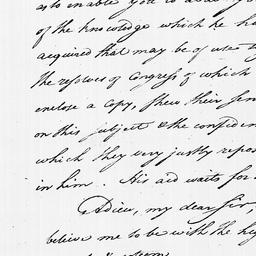 as to enable you to
of the knowledge which he ha
acquired that may be of use to
the resolves of Congress of which
enclose a Copy, shew their sen
on this subject & the confiden
which they very justly repos
in him. His aid waits for
Adieu, my dear Sir,
believe me to be with the hig